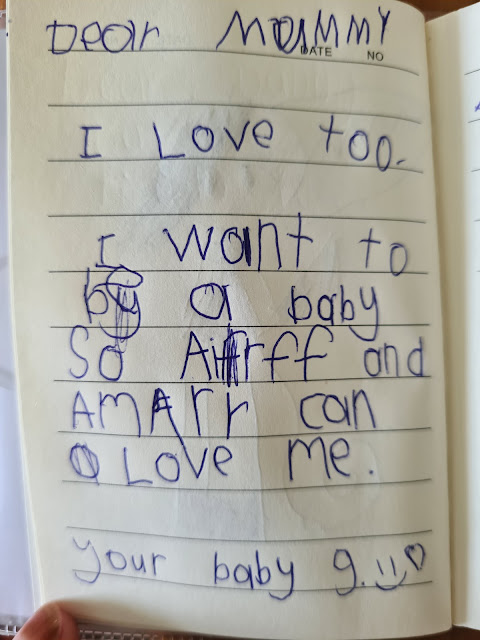 Dear Mommy
DATE NO
I Love too.
I want to
by a baby
So and
AmArr can
Love me.
your baby g.